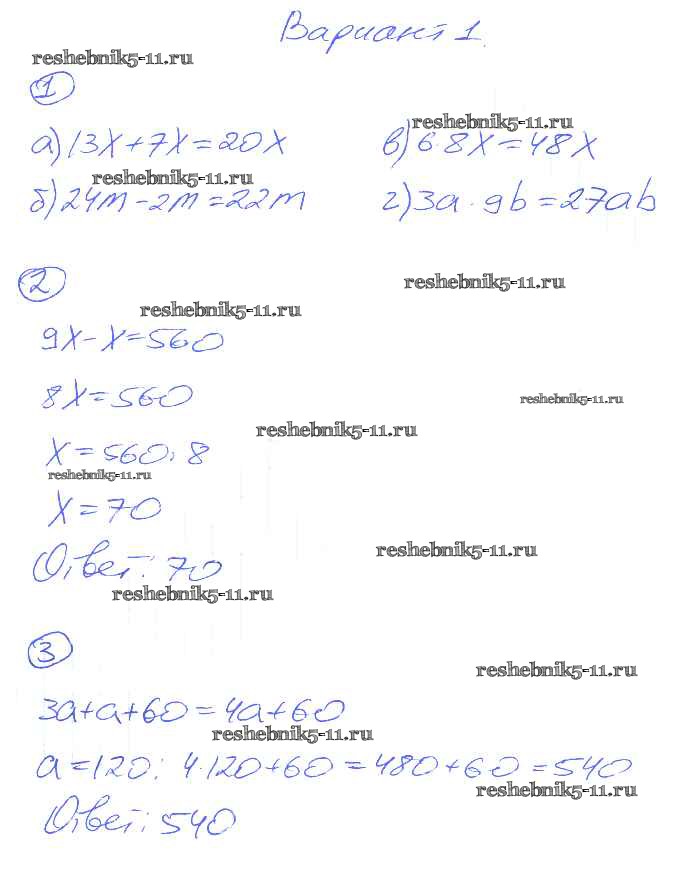 Вариант 1.
reshebnik5-11.ru
1
reshebnik5-11.ru
а) 13x+7x=20x
в) 6·8x=48x
reshebnik5-11.ru
б) 24m-2m=22m
г) 3a·9b=27ab
2
reshebnik5-11.ru
reshebnik5-11.ru
9x-x=560
8x=560
reshebnik5-11.ru
reshebnik5-11.ru
x=560:8
reshebnik5-11.ru
x=70
reshebnik5-11.ru
Ответ: 70
reshebnik5-11.ru
3
reshebnik5-11.ru
3a+a+60=4a+60
reshebnik5-11.ru
a=120: 4·120+60=480+60=540
reshebnik5-11.ru
Ответ: 540